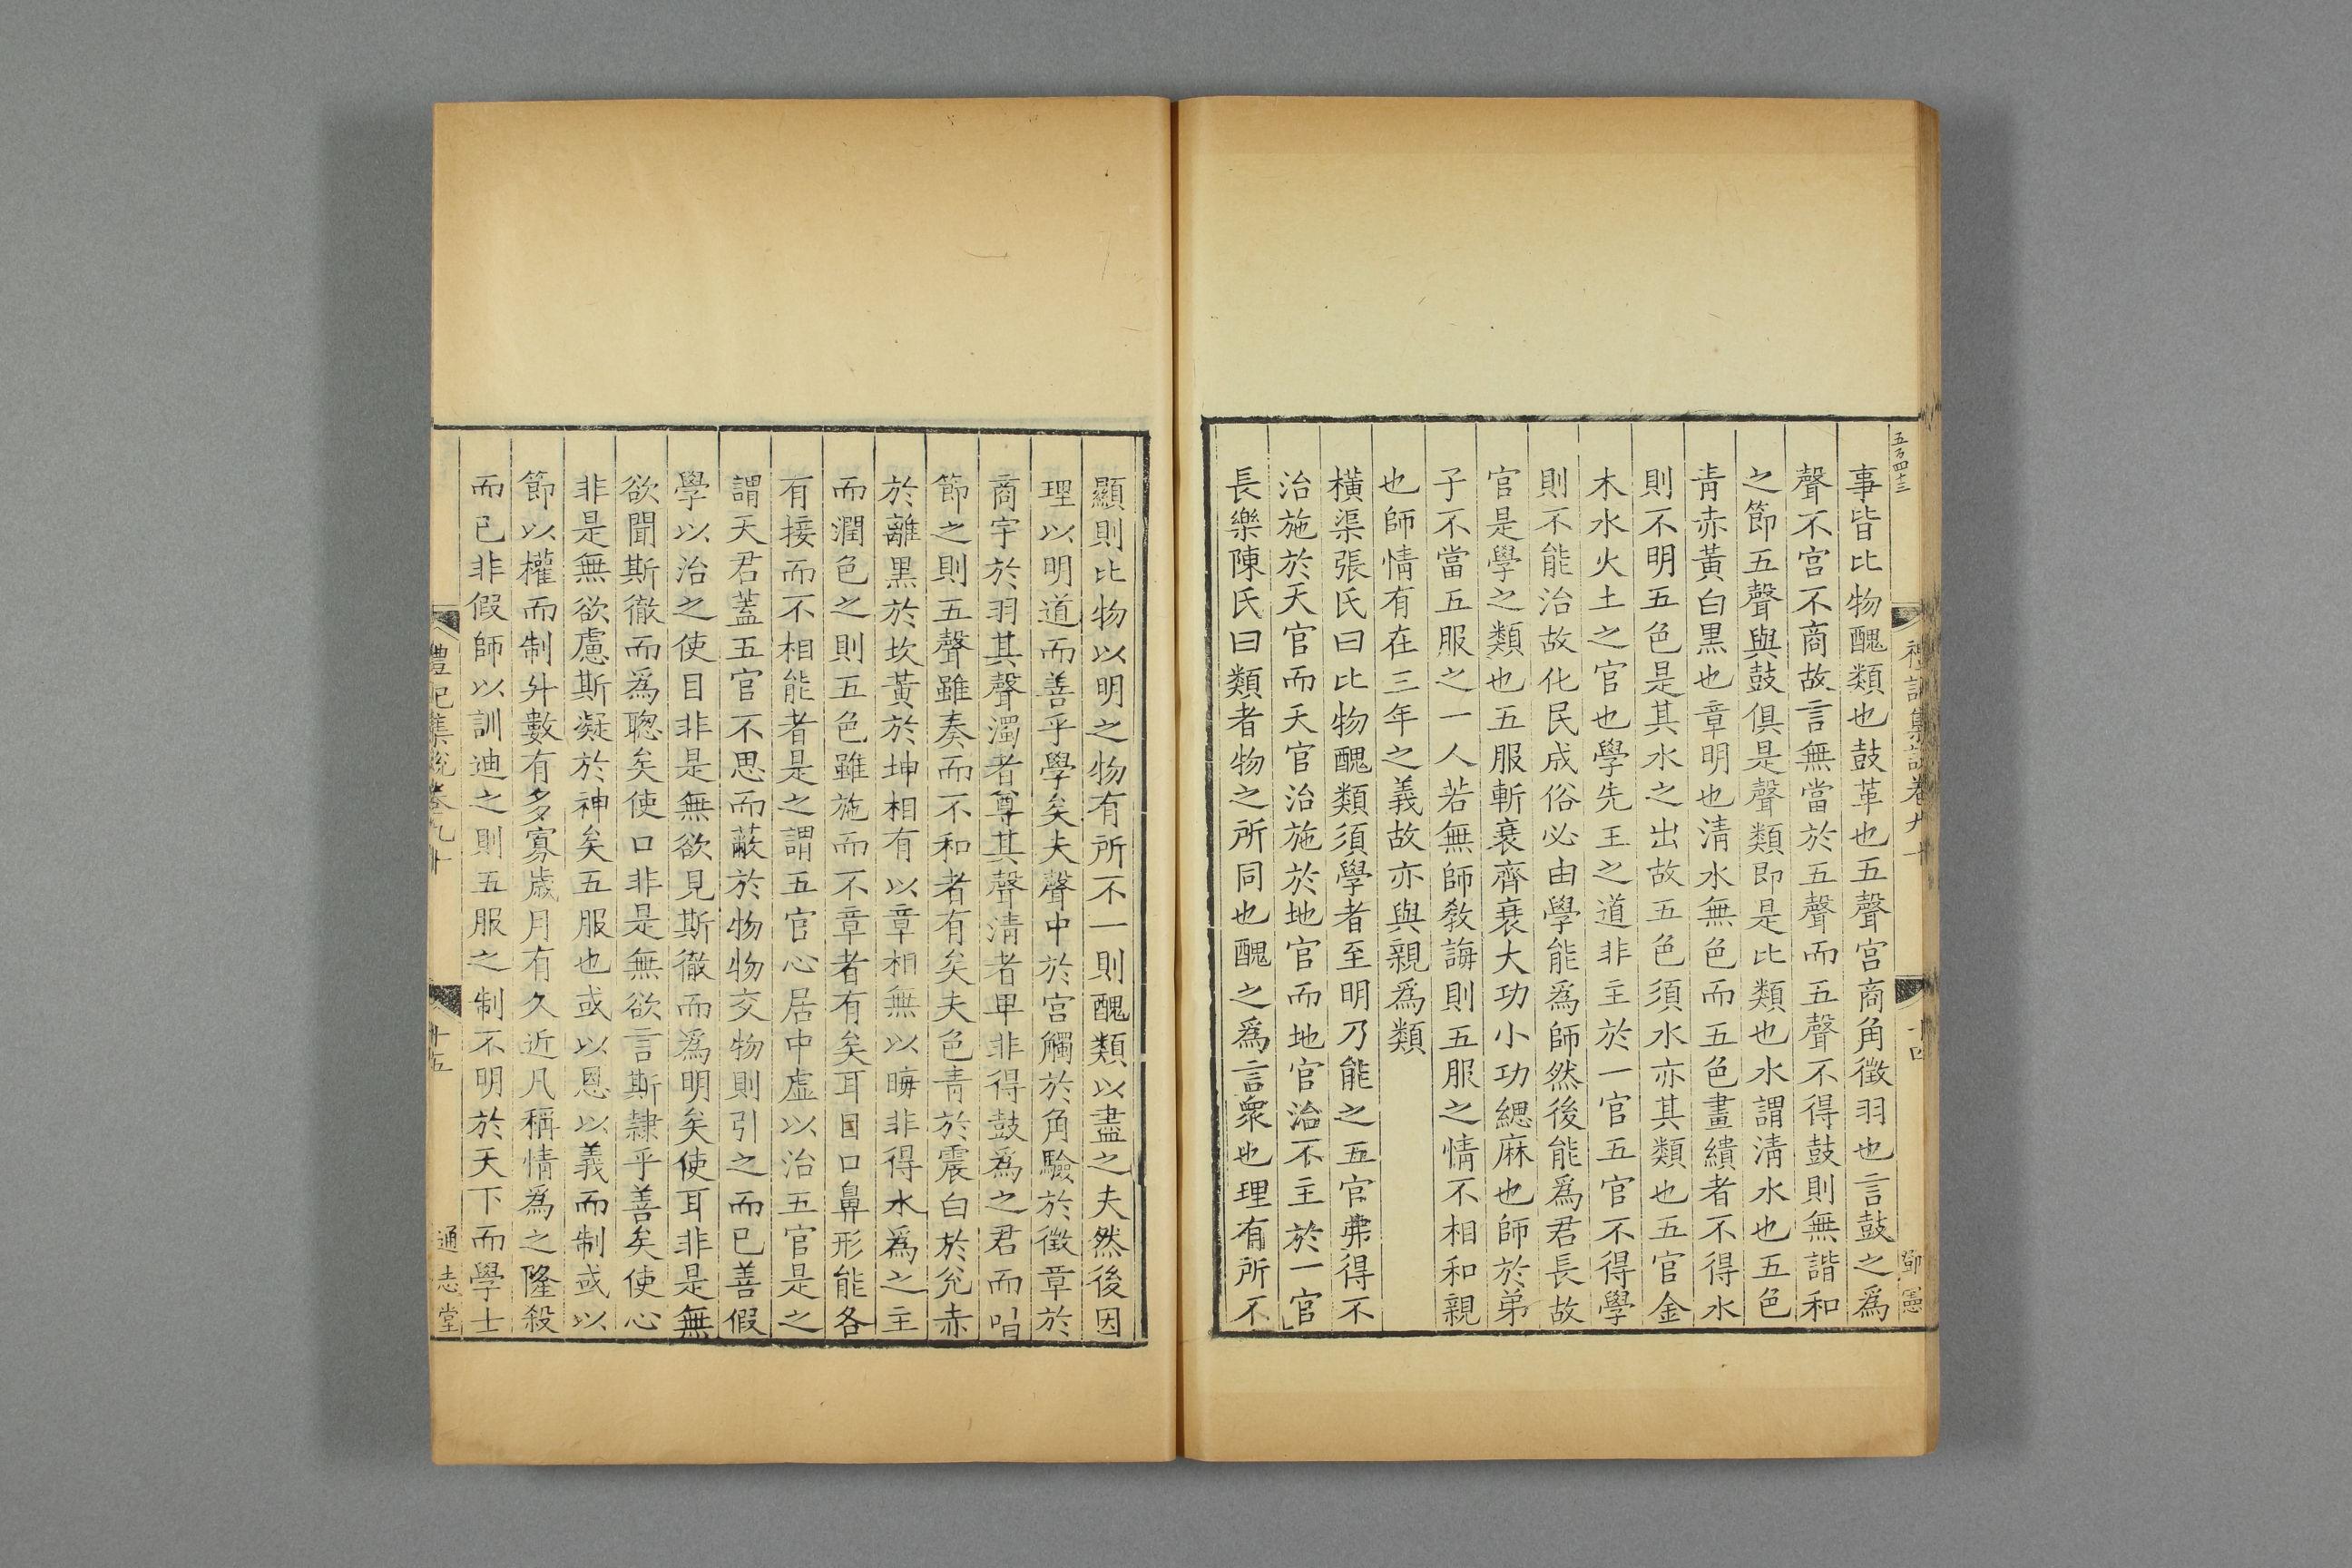 五百四十三
禮記集說卷九十
十四
鄧憲
事皆比物醜類也鼓革也五聲宮商角徵羽也言鼓之爲
聲不宮不商故言無當於五聲而五聲不得鼓則無諧和
之節五聲與鼓俱是聲類即是比類也水謂淸水也五色
靑赤黃白黑也章明也淸水無色而五色畫繢者不得水
則不明五色是其水之出故五色須水亦其類也五官金
木水火土之官也學先王之道非主於一官五官不得學
則不能治故化民成俗必由學能爲師然後能爲君長故
官是學之類也五服斬衰齊衰大功小功緦麻也師於弟
子不當五服之一人若無師敎誨則五服之情不相和親
也師情有在三年之義故亦與親爲類
橫渠張氏曰比物醜類須學者至明乃能之五官弗得不
治施於天官而天官治施於地官而地官治不主於一官
長樂陳氏曰類者物之所同也醜之爲言衆也理有所不
顯則比物以明之物有所不一則醜類以盡之夫然後因
理以明道而善乎學矣夫聲中於宮觸於角驗於徵章於
商宇於羽其聲濁者尊其聲淸者卑非得鼓爲之君而唱
節之則五聲雖奏而不和者有矣夫色靑於震白於兊赤
於離黑於坎黃於坤相有以章相無以晦非得水爲之主
而潤色之則五色雖施而不章者有矣耳目口鼻形能各
有接而不相能者是之謂五官心居中虛以治五官是之
謂天君蓋五官不思而蔽於物物交物則引之而已善假
學以治之使目非是無欲見斯徹而爲明矣使耳非是無
欲聞斯徹而爲聰矣使口非是無欲言斯隷乎善矣使心
非是無欲慮斯凝於神矣五服也或以恩以義而制或以
節以權而制升數有多寡歲月有久近凡稱情爲之隆殺
而已非假師以訓迪之則五服之制不明於天下而學士
禮記集說卷九十
十五
通志堂